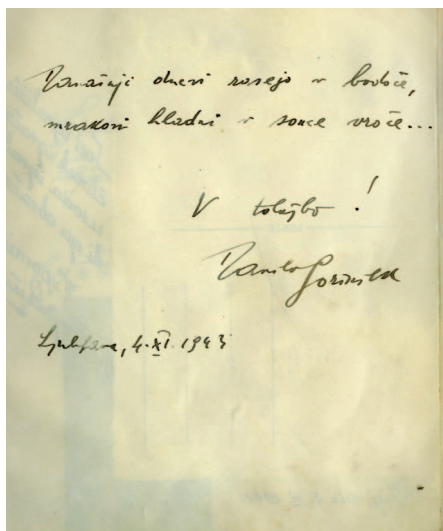 Današnji dnevi rasejo v bodoče,
mrakovi hladni v sonce vroče...
V tolažbo!
Danilo Gorinšek
Ljubljana, 4. XI. 1943